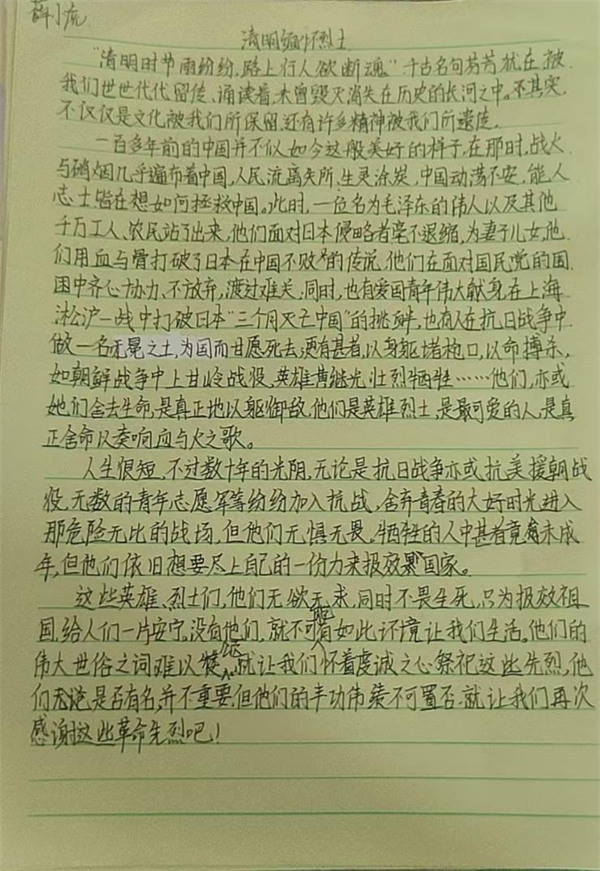 薛小虎
清明缅怀烈士
“清明时节雨纷纷，路上行人欲断魂。”千古名句芳芳犹在，被
我们世世代代留传、诵读着，未曾毁灭消失在历史的长河之中。不其实
不仅仅是文化被我们所保留，还有许多精神被我们所遗传。
一百多年前的中国并不似如今这般美好的样子，在那时，战火
与硝烟几乎遍布着中国，人民流离失所，生灵涂炭，中国动荡不安，能人
志士皆在想如何拯救中国。此时，一位名为毛泽东的伟人以及其他
千万工人、农民站了出来，他们面对日本侵略者毫不退缩，为妻子儿女，他
们用血与骨打破了日本在中国不败的传说，他们在面对国民党的围
困中齐心协力、不放弃，渡过难关，同时，也有爱国青年伟大献身，在上海
淞沪一战中打破日本“三个月灭亡中国”的挑衅，也有人在抗日战争中
做一名无冕之士，为国而甘愿死去，更有甚者，以身躯堵枪口，以命搏杀，
如朝鲜战争中上甘岭战役，英雄黄继光壮烈牺牲……他们，亦或
她们舍去生命，是真正地以躯御敌，他们是英雄烈士，是最可爱的人，是真
正舍命以奏响血与火之歌。
人生很短，不过数十年的光阴，无论是抗日战争亦或抗美援朝战
役，无数的青年志愿军等纷纷加入抗战，舍弃青春的大好时光进入
那危险无比的战场，但他们无惧无畏，牺牲的人中甚者竟有未成
年，但他们依旧想要尽上自己的一份力来报效国家。
这些英雄、烈士们，他们无欲无求，同时不畏生死，只为报效祖
国，给人们一片安宁，没有他们，就不可能有如此环境让我们生活。他们的
伟大世俗之词难以，就让我们怀着虔诚之心祭祀这些先烈，他
们无论是否有名，并不重要，但他们的丰功伟绩不可置否，就让我们再次
感谢这些革命先烈吧！